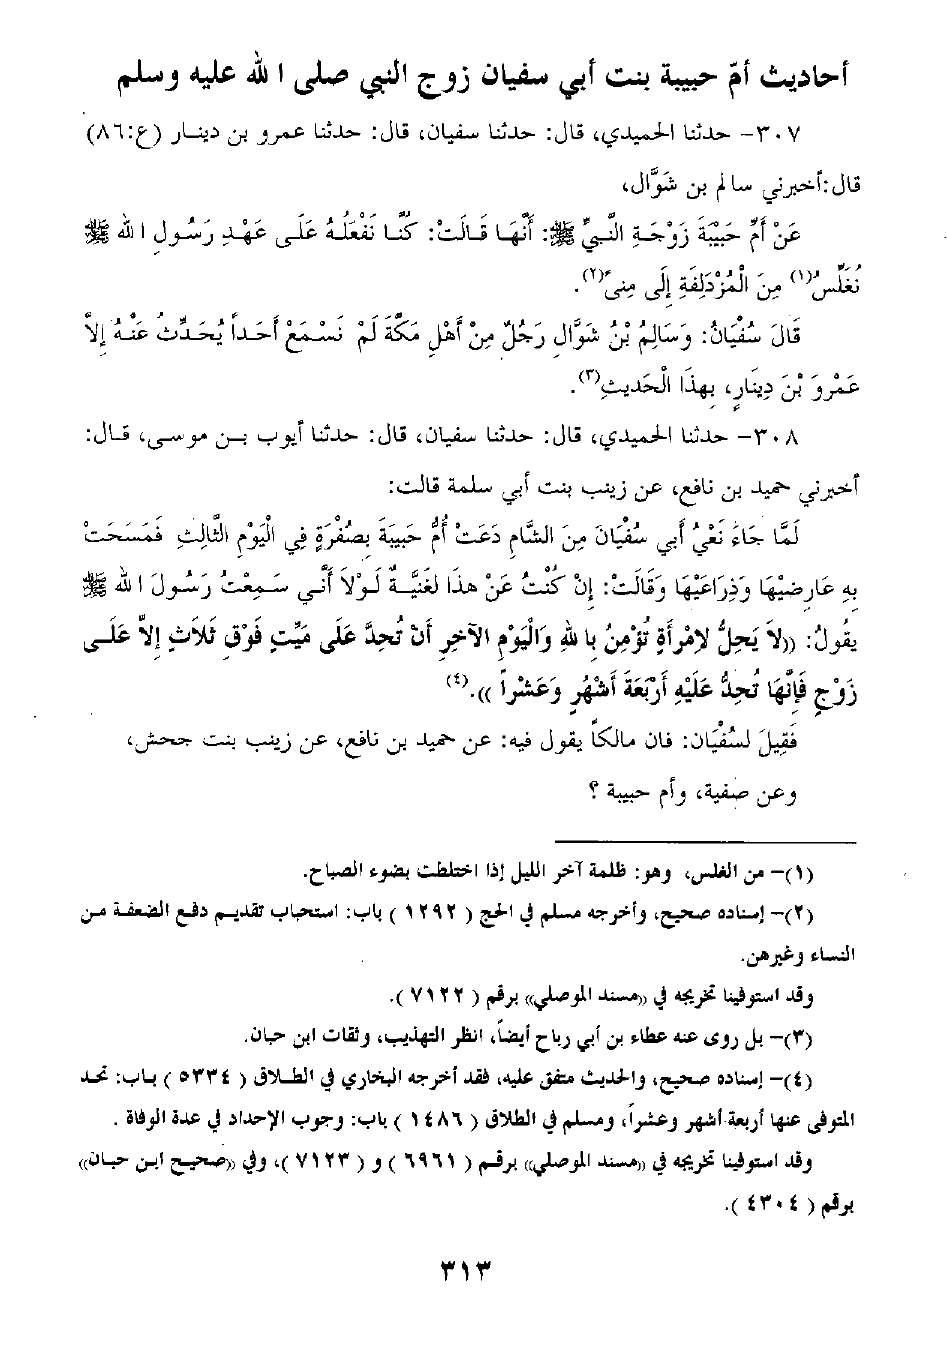 أحاديث أمّ حبيبة بنت أبي سفيان زوج النبي صلى ا لله عليه وسلم
٣٠٧- حدثنا الحميدي، قال: حدثنا سفيان، قال: حدثنا عمرو بن دينار (ع:٨٦)
قال:أخبرني سالم بن شَوَّال،
عَنْ أمِّ حَبِيْبَةَ زَوْجَةِ النَّبِيِّ ﷺ: أَنَّهَا قَالَتْ: كُنَّا نَفْعَلُهُ عَلَى عَهْدِ رَسُولِ ا لله ﷺ
نُغَلِّسُ(١) مِنَ الْمُزْدَلِفَةِ إِلَى مِنىً(٢).
قَالَ سُفْيَانُ: وَسَالِمُ بْنُ شَوَّالٍ رَجُلٌ مِنْ أَهْلِ مَكَّةَ لَمْ نَسْمَعْ أَحَداً يُحَدِّثُ عَنْهُ إِلاَّ
عَمْرَو بْنَ دِينَارٍ، بِهذَا الْحَدِيثِ(٣).
٣٠٨- حدثنا الحميدي، قال: حدثنا سفيان، قال: حدثنا أيوب بن موسى، قال:
أخبرني حميد بن نافع، عن زينب بنت أبي سلمة قالت:
لَمَّا جَاءَ نَعْيُ أَبِي سُفْيَانَ مِنَ الشَّامِ دَعَتْ أُمُّ حَبِيبَةَ بِصُفْرَةٍ فِي الْيَوْمِ الثَّالِثِ فَمَسَحَتْ
بِهِ عَارِضَيْهَا وَذِرَاعَيْهَا وَقَالَتْ: إِنْ كُنْتُ عَنْ هذَا لَغَنِيَّةٌ لَوْلاَ أَنِّي سَمِعْتُ رَسُولَ ا لله ﷺ
يَقُولُ: ((لاَ يَحِلُّ لاِمْرأَةٍ تُؤْمِنُ بِا للهِ وَالْيَوْمِ الآخِرِ أَنْ تُحِدَّ عَلَى مَيِّتٍ فَوْقَ ثَلاَثٍ إِلاَّ عَلَى
زَوْجٍ فَإِنَّهَا تُحِدُّ عَلَيْهِ أَرْبَعَةَ أَشْهُرٍ وَعَشْراً )).(٤)
فَقِيلَ لسُفْيَان: فان مالكاً يقول فيه: عن حميد بن نافع، عن زينب بنت جحش،
وعن صفية، وأم حبيبة ؟
(١)- من الغلس، وهو: ظلمة آخر الليل إذا اختلطت بضوء الصباح.
(٢)- إسناده صحيح، وأخرجه مسلم في الحج ( ١٢٩٢ ) باب: استحباب تقديم دفع الضعفة من
النساء وغيرهن.
وقد استوفينا تخريجه في ((مسند الموصلي)) برقم ( ٧١٢٢ ).
(٣)- بل روى عنه عطاء بن أبي رباح أيضاً، انظر التهذيب، وثقات ابن حبان.
(٤)- إسناده صحيح، والحديث متفق عليه، فقد أخرجه البخاري في الطلاق ( ٥٣٣٤ ) باب: تحد
المتوفى عنها أربعة أشهر وعشراً، ومسلم في الطلاق ( ١٤٨٦ ) باب: وجوب الإحداد في عدة الوفاة .
وقد استوفينا تخريجه في ((مسند الموصلي)) برقم ( ٦٩٦١ ) و ( ٧١٢٣ )، وفي ((صحيح ابن حبان))
برقم ( ٤٣٠٤ ).
٣١٣